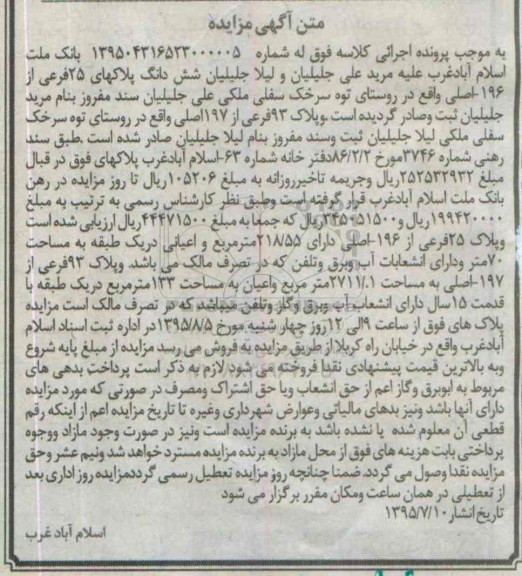 متن آگهی مزایده
به موجب پرونده اجرائی کلاسه فوق له شماره ۱۳۹۵۰۴۳۱۶۵۲۳۰۰۰۰۰۵ بانک ملت
اسلام آبادغرب علیه مرید علی جلیلیان و لیلا جلیلیان شش دانگ پلاکهای ۲۵فرعی از
۱۹۶-اصلی واقع در روستای توه سرخک سفلی ملکی علی جلیلیان سند مفروز بنام مرید
جلیلیان ثبت وصادر گردیده است.وپلاک ۹۳فرعی از ۱۹۷اصلی واقع در روستای توه سرخک
سفلی ملکی لیلا جلیلیان ثبت وسند مفروز بنام لیلا جلیلیان صادر شده است .طبق سند
رهنی شماره ۳۷۴۶مورخ ۸۶/۲/۲دفتر خانه شماره ۶۳-اسلام آبادغرب پلاکهای فوق در قبال
مبلغ ۲۵۲۵۳۲۹۳۲ریال وجریمه تاخیرروزانه به مبلغ ۱۰۵۲۰۶ریال تا روز مزایده در رهن
بانک ملت اسلام آبادغرب قرار گرفته است وطبق نظر کارشناس رسمی به ترتیب به مبلغ
۱۹۹۴۲۰۰۰۰ریال و۲۴۵۰۵۱۵۰۰ریال که جمعا به مبلغ ۴۴۴۷۱۵۰۰ریال ارزیابی شده است
وپلاک ۲۵فرعی از ۱۹۶-اصلی دارای ۲۱۸/۵۵مترمربع و اعیانی دریک طبقه به مساحت
۷۰متر ودارای انشعابات آب وبرق وتلفن که در تصرف مالک می باشد. وپلاک ۹۳فرعی از
۱۹۷-اصلی به مساحت ۲۷۱۱/.۱متر مربع واعیان به مساحت ۱۳۳مترمربع دریک طبقه با
قدمت ۱۵سال دارای انشعاب آب وبرق وگاز وتلفن میباشد که در تصرف مالک است مزایده
پلاک های فوق از ساعت ۹الی ۱۲روز چهار شنبه مورخ ۱۳۹۵/۸/۵در اداره ثبت اسناد اسلام
آبادغرب واقع در خیابان راه کربلا از طریق مزایده به فروش می رسد مزایده از مبلغ پایه شروع
وبه بالاترین قیمت پیشنهادی نقدا فروخته می شود لازم به ذکر است پرداخت بدهی های
مربوط به ابوبرق وگاز اعم از حق انشعاب ویا حق اشتراک ومصرف در صورتی که مورد مزایده
دارای آنها باشد ونیز بدهای مالیاتی وعوارض شهرداری وغیره تا تاریخ مزایده اعم از اینکه رقم
قطعی آن معلوم شده یا نشده باشد به برنده مزایده است ونیز در صورت وجود مازاد ووجوه
پرداختی بابت هزینه های فوق از محل مازاد به برنده مزایده مسترد خواهد شد ونیم عشر وحق
مزایده نقدا وصول می گردد.ضمنا چنانچه روز مزایده تعطیل رسمی گرددمزایده روز اداری بعد
از تعطیلی در همان ساعت ومکان مقرر برگزار می شود
تاریخ انشار ۱۳۹۵/۷/۱۰
اسلام آباد غرب